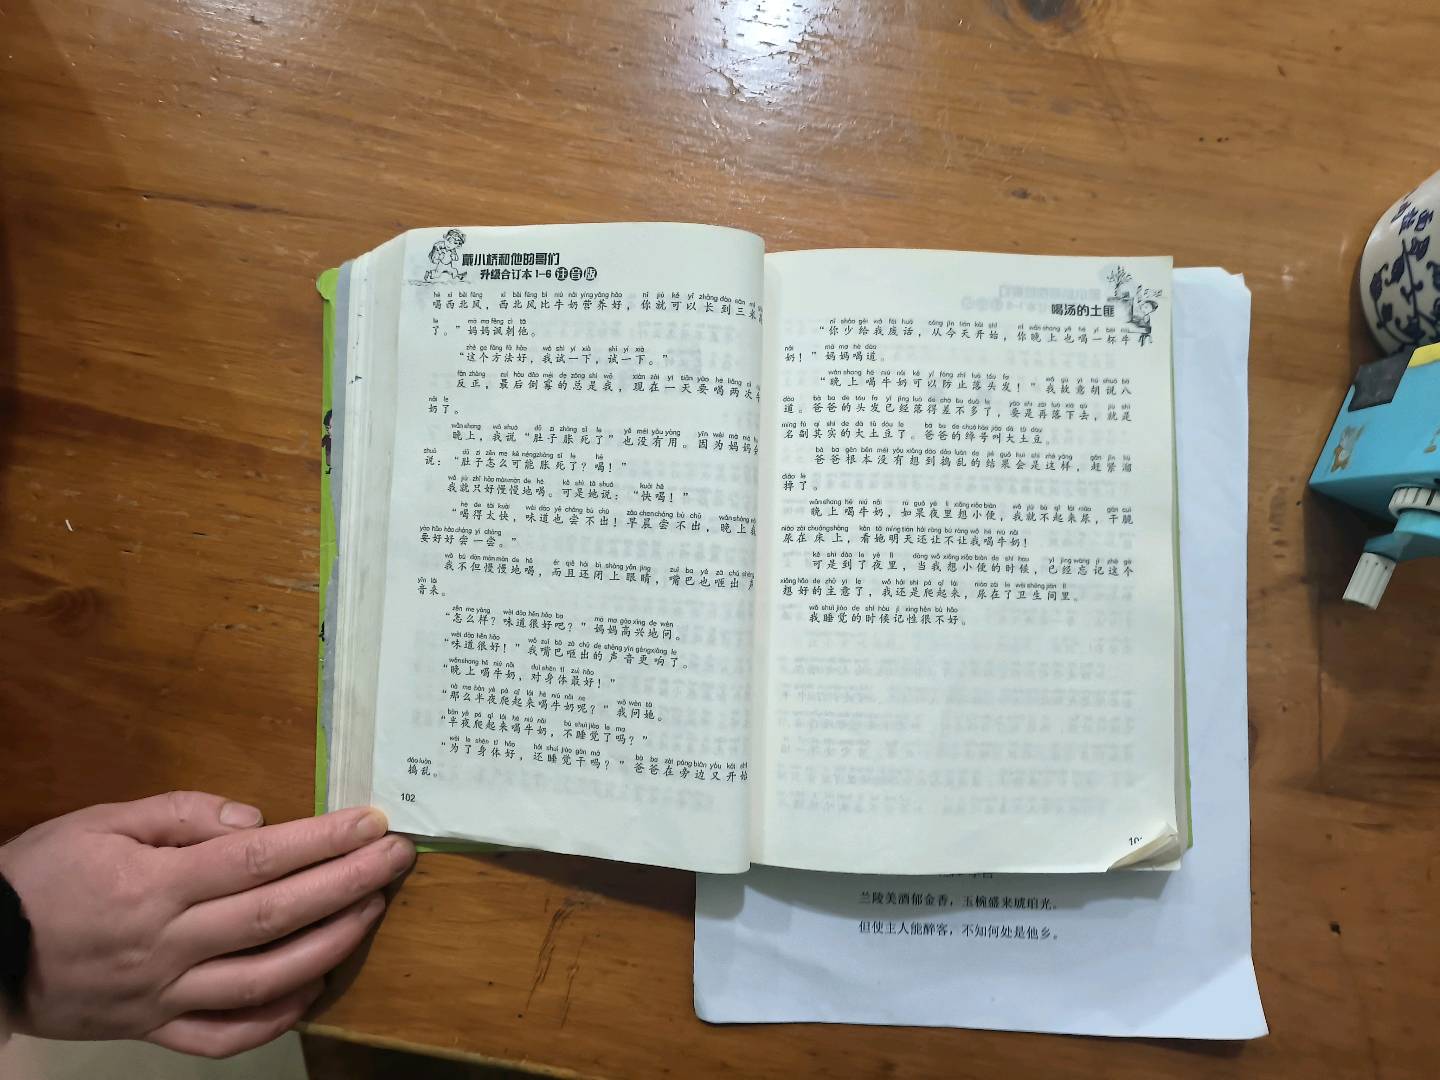 戴小桥和他的哥们
升级合订本1-6 注音版
喝西北风，西北风比牛奶营养好，你就可以长到三米高
了。”妈妈讽刺他。
“这个方法好，我试一下，试一下。”
反正，最后倒霉的总是我，现在一天要喝两次牛
奶了。
晚上，我说“肚子胀死了”也没有用。因为妈妈会
说：“肚子怎么可能胀死了？喝！”
我就只好慢慢地喝。可是她说：“快喝！”
“喝得太快，味道也尝不出！早晨尝不出，晚上我
要好好尝一尝。”
我不但慢慢地喝，而且还闭上眼睛，嘴巴也咂出声
音来。
“怎么样？味道很好吧？”妈妈高兴地问。
“味道很好！”我嘴巴咂出的声音更响了。
“晚上喝牛奶，对身体最好！”
“那么半夜爬起来喝牛奶呢？”我问她。
“半夜爬起来喝牛奶，不睡觉了吗？”
“为了身体好，还睡觉干吗？”爸爸在旁边又开始
捣乱。
102
喝汤的土匪
“你少给我废话，从今天开始，你晚上也喝一杯牛
奶！”妈妈喝道。
“晚上喝牛奶可以防止落头发！”我故意胡说八
道。爸爸的头发已经落得差不多了，要是再落下去，就是
名副其实的大土豆了。爸爸的绰号叫大土豆。
爸爸根本没有想到捣乱的结果会是这样，赶紧溜
掉了。
晚上喝牛奶，如果夜里想小便，我就不起来尿，干脆
尿在床上，看她明天还让不让我喝牛奶！
可是到了夜里，当我想小便的时候，已经忘记这个
想好的主意了，我还是爬起来，尿在了卫生间里。
我睡觉的时候记性很不好。
兰陵美酒郁金香，玉椀盛来琥珀光。
但使主人能醉客，不知何处是他乡。